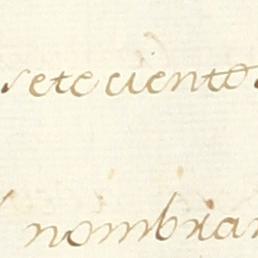 setecientos
nombrar